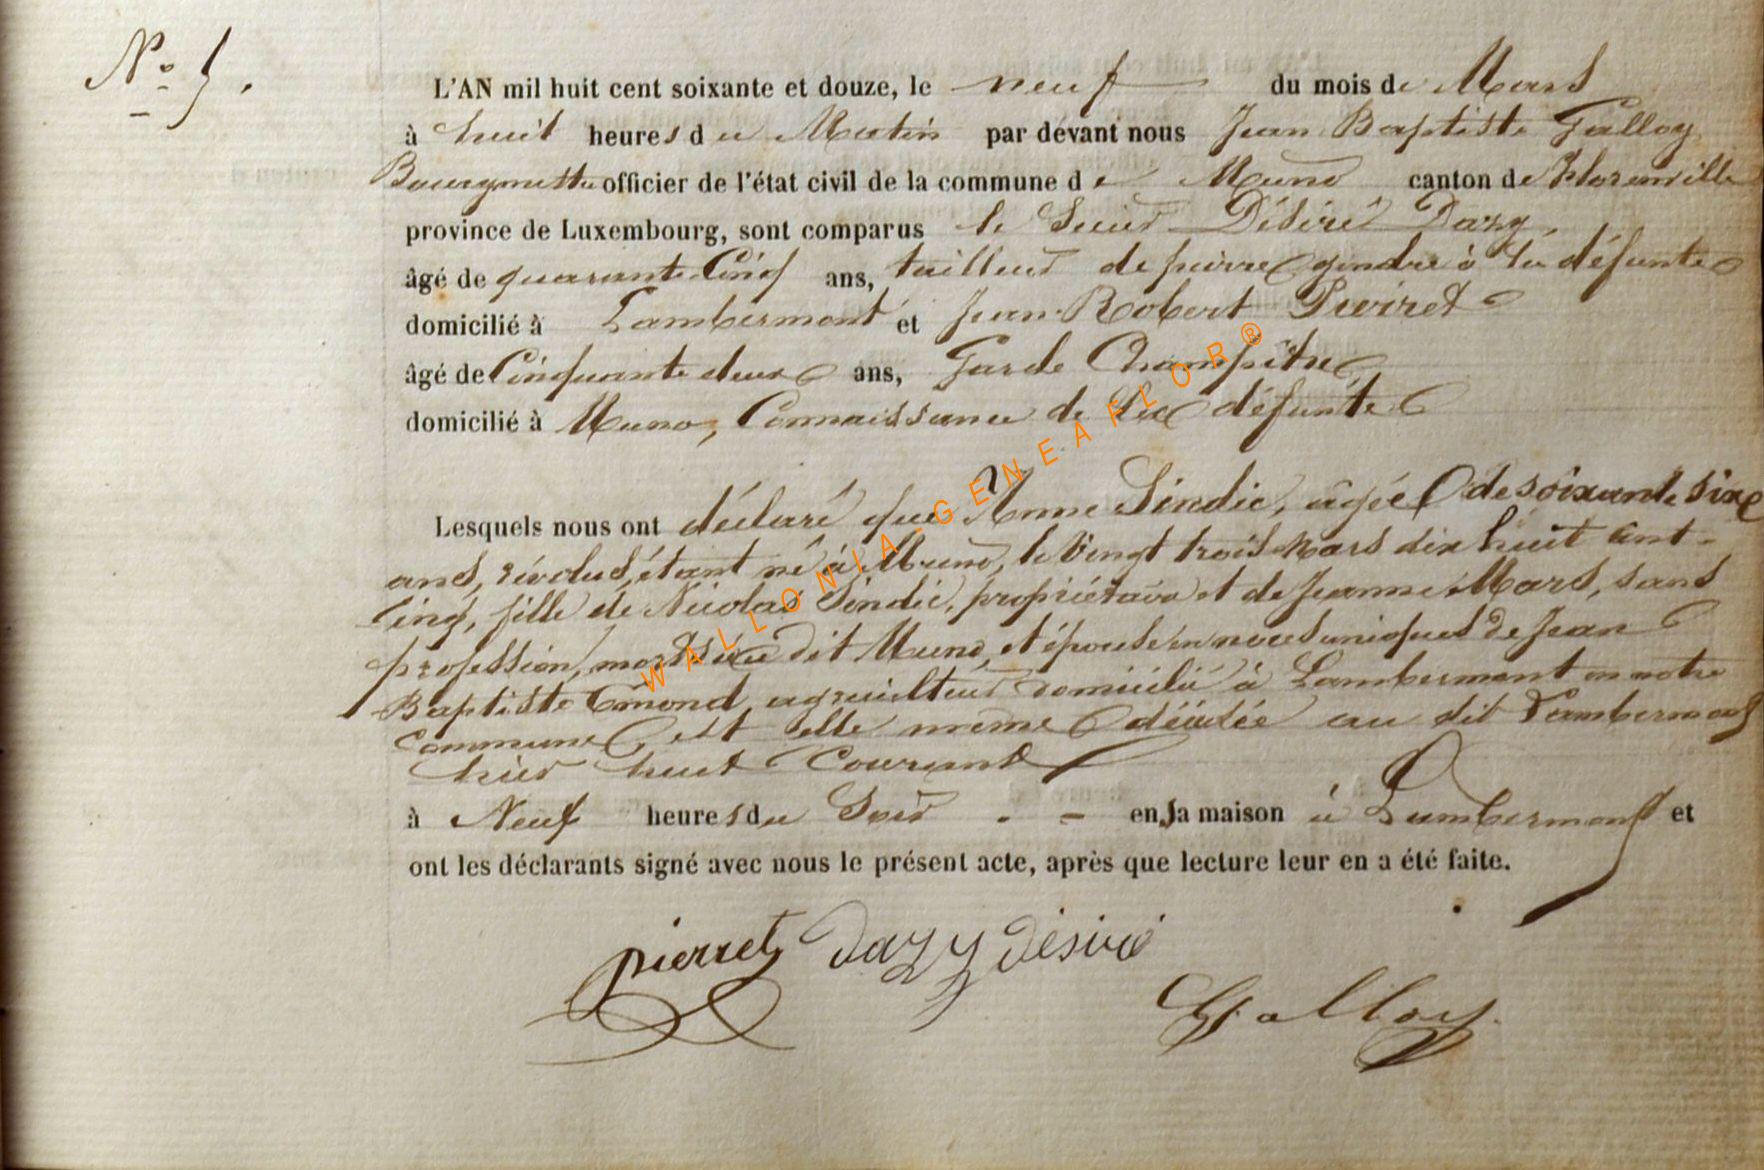 N° 5.
L'AN mil huit cent soixante et douze, le neuf du mois de Mars
à huit heures du Matin par devant nous Jean Baptiste Galloy
Bourgmestre officier de l'état civil de la commune de Muno canton de Florenville
province de Luxembourg, sont comparus le Sieur Désiré Dazy,
âgé de quarante Cinq ans, tailleur de pierre gendre à la défunte
domicilié à Lambermont et Jean Robert Pierret
âgé de Cinquante deux ans, Garde Champêtre
domicilié à Muno, Connaissance de la défunte
Lesquels nous ont déclaré que Anne Sindic, âgée de soixante six
ans, révolus, étant né à Muno, le Vingt trois Mars dix huit Cent
Cinq, fille de Nicolas Sindic, propriétaire et de Jeanne Mars, sans
profession, morts au dit Muno, et épouse en noces uniques de Jean
Baptiste Emond agriculteur domicilié à Lambermont en notre
commune, est elle même décédée au dit Lambermont
hier huit Courant
à Neuf heures du Soir - - en sa maison à Lambermont et
ont les déclarants signé avec nous le présent acte, après que lecture leur en a été faite.
pierret Dazy Désiré
Galloy
WALLONIA-GENEAFLOR®